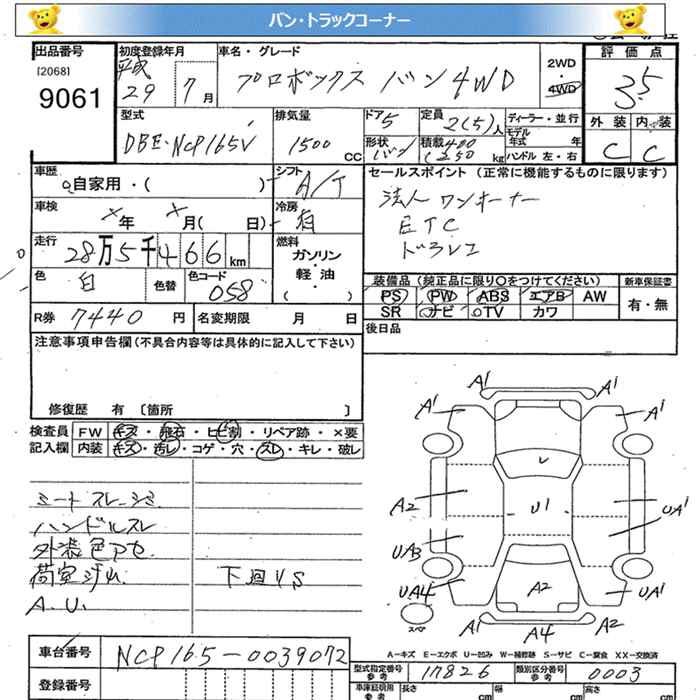 バン・トラックコーナー
出品番号 初度登録年月 車名・グレード 評価点
[2068] 9061
平成 29 7月
プロボックス バン 4WD
2WD・4WD
3.5
型式 DBE-NCP165V
排気量 1500 CC
ドア 5
定員 2(5)人
ディーラー・並行
形状 バン
積載 400 (250) kg
モデル年式 年
ハンドル 左・右
外装 内装
C C
車歴 自家用・( )
シフト A/T
セールスポイント(正常に機能するものに限ります)
法人 ワンオーナー
ETC
ドラレコ
車検 ×年 ×月( 日)
冷房 有
走行 28万5千466km
燃料 ガソリン・軽油 ( )
色 白 色替 色コード 058
装備品(純正品に限り○をつけてください) 新車保証書
PS PW ABS エアB AW 有・無
SR ナビ TV カワ
R券 7440円 名変期限 月 日
後日品
注意事項申告欄(不具合内容等は具体的に記入して下さい)
修復歴 有〔箇所 〕
検査員 FW キズ・飛石・ヒビ割・リペア跡・×要
記入欄 内装 キズ・汚レ・コゲ・穴・スレ・キレ・破レ
シートスレ・シミ
ハンドルスレ
外装色アセ
荷室
下回りS
A.U.
A1 A1
A1 A1
A2 U1 UA1
UA3
UA4 A2 UA1
スペア A1 A4 A1
A-キズ E-エクボ U-凹み W-補修跡 S-サビ C-腐食 XX-交換済
車台番号 NCP165-0039072
型式指定番号 参考 17826 類別区分番号 参考 0003
登録番号
車庫証明用 参考 長さ cm 幅 cm 高さ cm